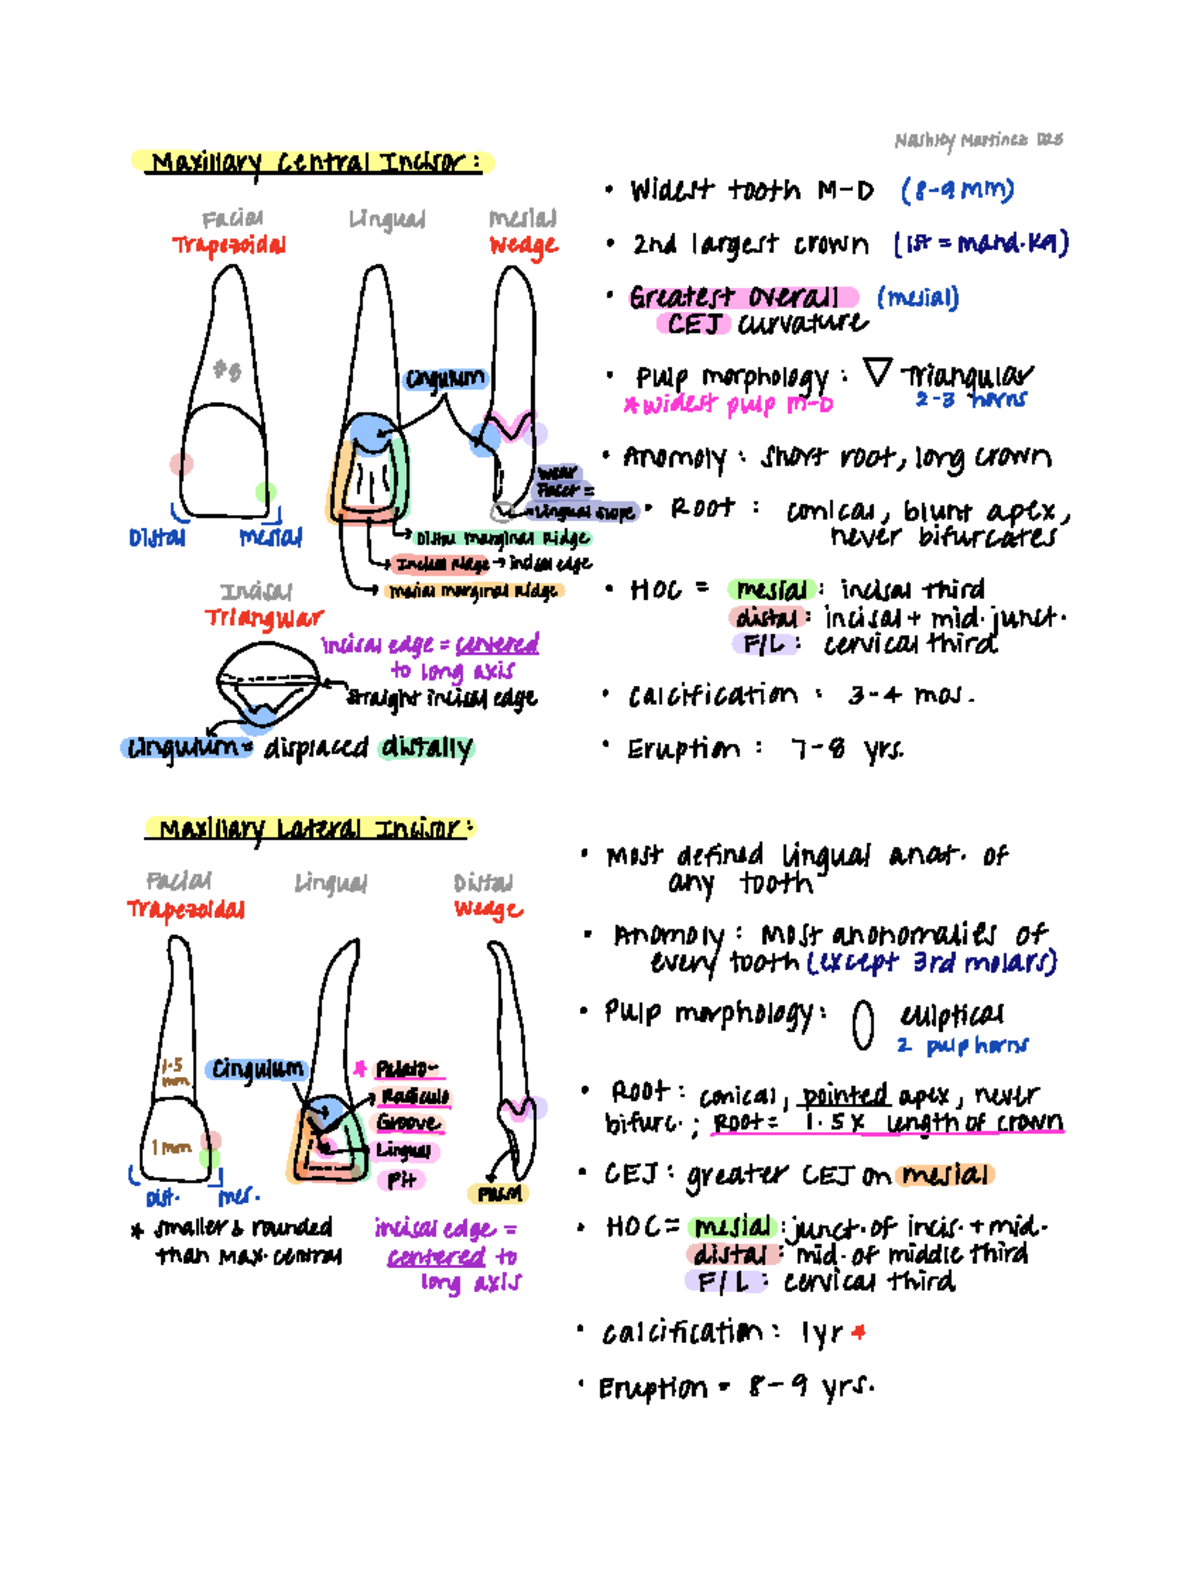 Nashley Martinez D25
Maxillary Central Incisor:
Facial
Trapezoidal
Lingual
mesial
Wedge
#8
Cingulum
Wear
Facet =
Lingual slope
Distal
mesial
Distal marginal Ridge
Incisal Ridge → incisal edge
mesial marginal Ridge
Incisal
Triangular
incisal edge = centered
to long axis
straight incisal edge
Cingulum = displaced distally
• Widest tooth M-D (8-9mm)
• 2nd largest crown (1st = mand. K9)
• Greatest overall (mesial)
CEJ curvature
• Pulp morphology: ▽ Triangular
* widest pulp M-D
2-3 horns
• Anomoly: short root, long crown
• Root: conical, blunt apex,
never bifurcates
• HOC = mesial: incisal third
distal: incisal + mid. junct.
F/L: cervical third
• Calcification: 3-4 mos.
• Eruption: 7-8 yrs.
Maxillary Lateral Incisor:
Facial
Trapezoidal
Lingual
Distal
Wedge
1.5
mm
1mm
Cingulum
* Palato-
Radiculo
Groove
Lingual
Pit
Dist.
mes.
* smaller & rounded
than Max. central
incisal edge =
centered to
long axis
• Most defined lingual anat. of
any tooth
• Anomoly: most anonomalies of
every tooth (except 3rd molars)
• Pulp morphology: elliptical
2 pulp horns
• Root: conical, pointed apex, never
bifurc.; Root = 1.5x length of crown
• CEJ: greater CEJ on mesial
• HOC = mesial: junct. of incis. + mid.
distal: mid. of middle third
F/L: cervical third
• Calcification: 1yr *
• Eruption - 8-9 yrs.